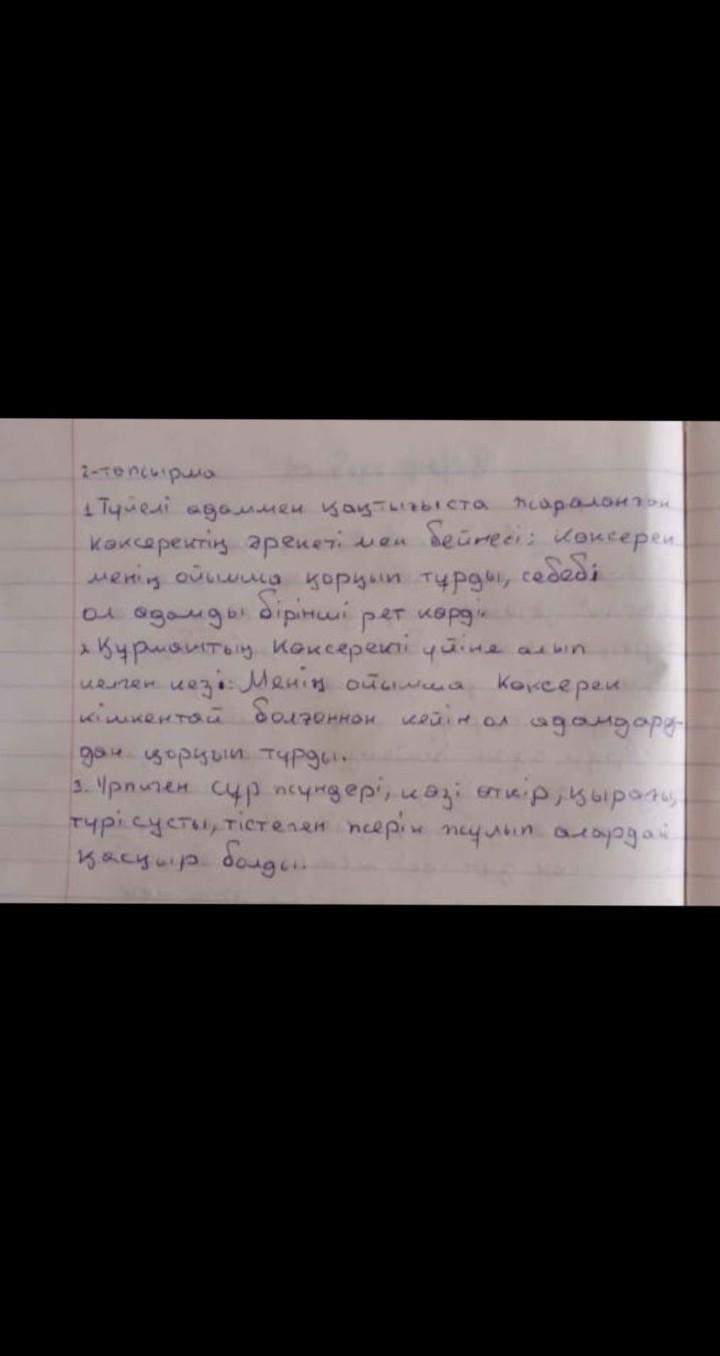 2-топсырма
1 Түйелі адаммен қақтығыста жараланған
Көксеректің әрекеті мен бейнесі: Көксерек
менің ойымша қорқып тұрды, себебі
ол адамды бірінші рет көрді.
2 Құрмаштың Көксеректі үйіне алып
келген кезі: Менің ойымша Көксерек
кішкентай болғоннан кейін ол адамдард-
дан қорқып тұрды.
3. Үрпиген сұр жүндері, көзі өткір, қырағы,
түрі сұсты, тістеген жерін жұлып алардай
қасқыр болды.